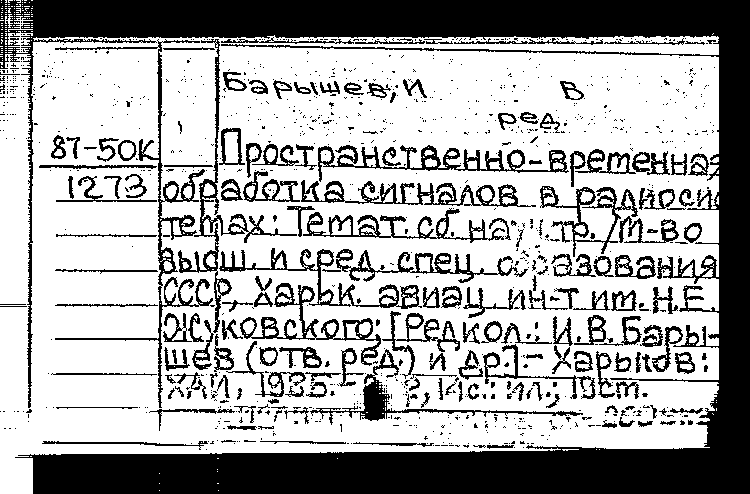 Барышев, И В
ред.
87-50К Пространственно-временная
1273 обработка сигналов в радиосис
темах: Темат. сб. науч. тр. / М-во
высш. и сред. спец. образования
СССР, Харьк. авиац. ин-т им. Н.Е.
Жуковского; [Редкол.: И.В. Бары-
шев (отв. ред.) и др.].- Харьков:
ХАИ, 1985.- с.: ил.; 19 cm.